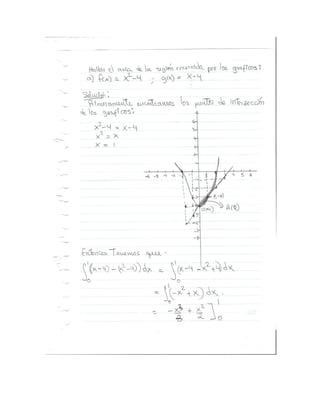 Hallar el area de la región encerrada por las gráficas:
a) f(x) = x²-4 ; g(x) = x-4
Solución:
Primeramente encontramos los puntos de intersección
de las gráficas:
x²-4 = x-4
x² = x
x = 1
A(R)
Entonces Tenemos que:
∫₀¹((x-4) - (x²-4)) dx = ∫₀¹(x-4 - x² + 4) dx
= ∫₀¹(-x² + x) dx.
= - x³/3 + x²/2 ]₀¹